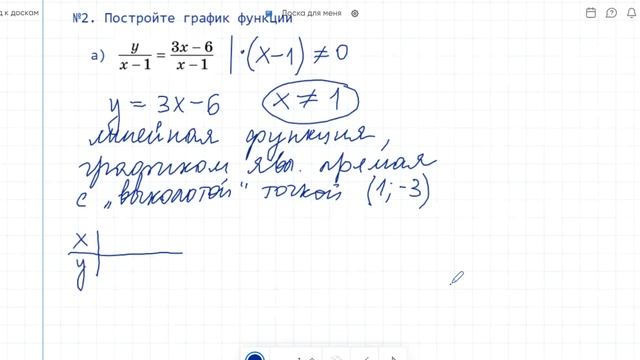 д к доскам
Доска для меня
№2. Постройте график функции
а) y/(x − 1) = (3x − 6)/(x − 1) | · (x−1) ≠ 0
y = 3x−6 x ≠ 1
линейная функция,
графиком явл. прямая
с „выколотой" точкой (1; −3)
x
y